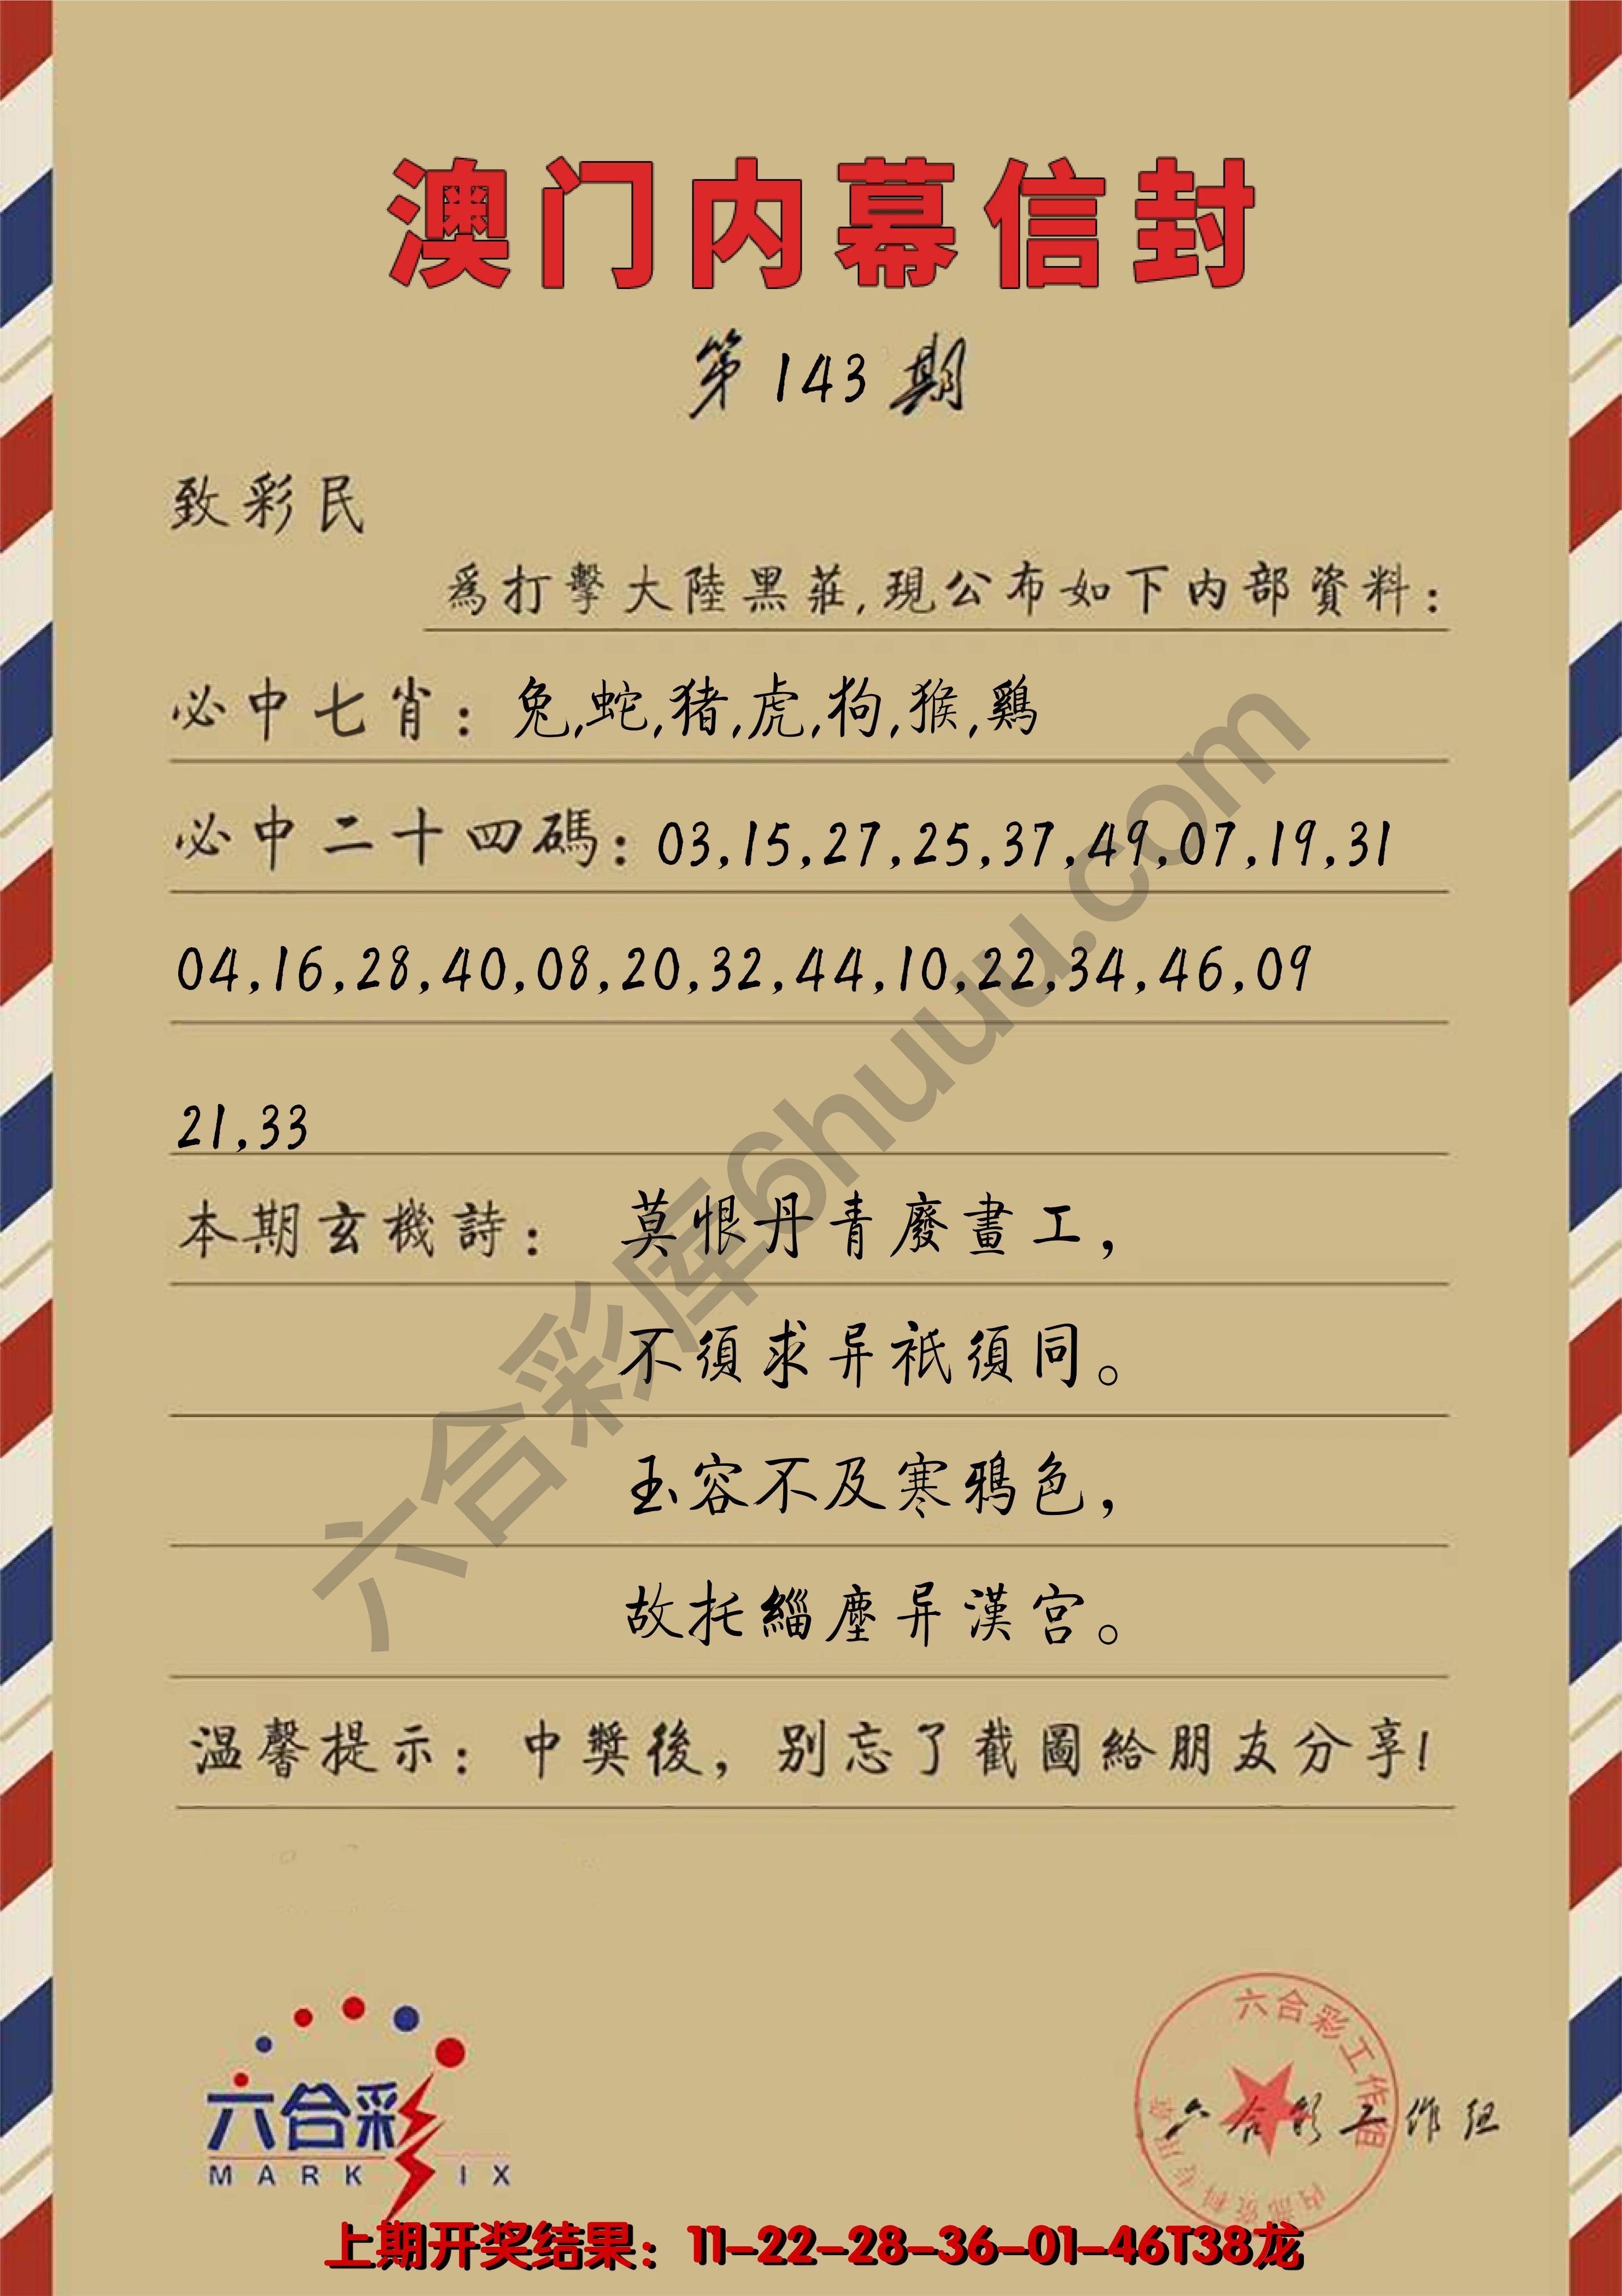 澳门内幕信封
第143期
致彩民
爲打擊大陸黑莊,現公布如下内部資料:
必中七肖: 兔,蛇,猪,虎,狗,猴,鷄
必中二十四碼: 03,15,27,25,37,49,07,19,31
04,16,28,40,08,20,32,44,10,22,34,46,09
21,33
本期玄機詩: 莫恨丹青廢畫工,
不須求异衹須同。
玉容不及寒鴉色,
故托緇塵异漢宫。
温馨提示: 中獎後, 别忘了截圖給朋友分享!
六合彩库6huuu.com
六合彩
MARK SIX
六合彩工作组
内部资料专用章
六合彩工作组
上期开奖结果: 11-22-28-36-01-46T38龙